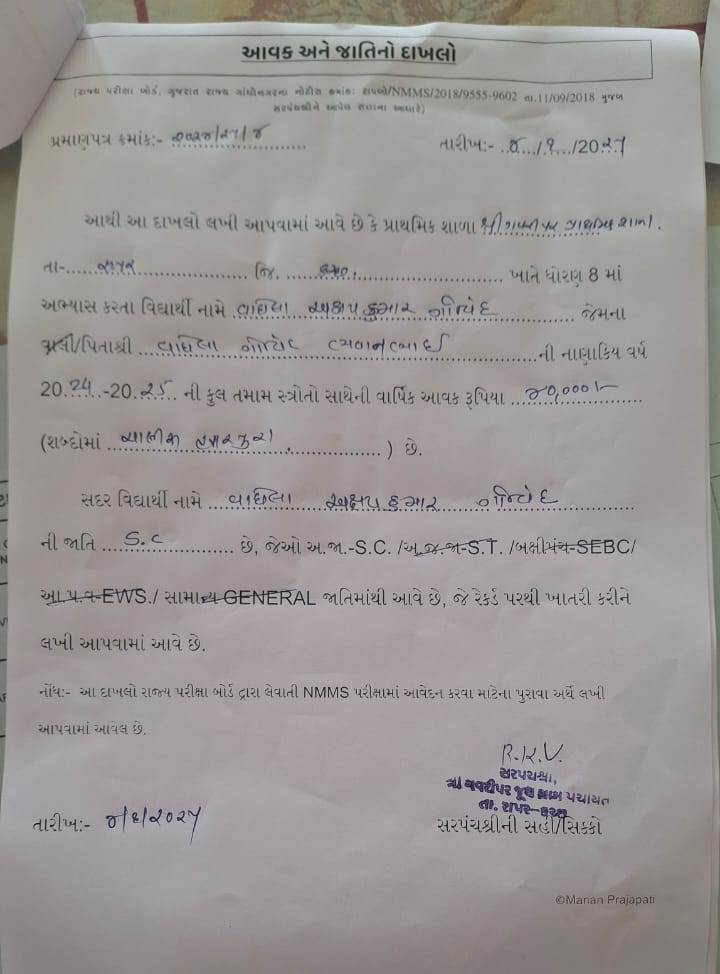 આવક અને જાતિનો દાખલો
(રાજ્ય પરીક્ષા બોર્ડ, ગુજરાત રાજ્ય ગાંધીનગરના નોટીસ ક્રમાંક: રાપબો/NMMS/2018/9555-9602 તા.11/09/2018 મુજબ
સરપંચશ્રીને આપેલ સત્તાના આધારે)
પ્રમાણપત્ર ક્રમાંક:-
તારીખ:- /2025
આથી આ દાખલો લખી આપવામાં આવે છે કે પ્રાથમિક શાળા
તા- રાપર જિ. ખાતે ધોરણ 8 માં
અભ્યાસ કરતા વિદ્યાર્થી નામે વાઘેલા અક્ષયકુમાર ગોવિંદ જેમના
વાલી/પિતાશ્રી વાઘેલા ગોવિંદ ની નાણાકિય વર્ષ
20 24 -20 25 ની કુલ તમામ સ્ત્રોતો સાથેની વાર્ષિક આવક રૂપિયા ૪૦,૦૦૦/-
(શબ્દોમાં ચાલીસ હજાર પુરા ) છે.
સદર વિદ્યાર્થી નામે વાઘેલા અક્ષયકુમાર ગોવિંદ
ની જાતિ S.C છે, જેઓ અ.જા.-S.C. /અ.જ.જા-S.T. /બક્ષીપંચ-SEBC/
આ.પ.વ-EWS./ સામાન્ય GENERAL જાતિમાંથી આવે છે, જે રેકર્ડ પરથી ખાતરી કરીને
લખી આપવામાં આવે છે.
નોંધ:- આ દાખલો રાજ્ય પરીક્ષા બોર્ડ દ્વારા લેવાતી NMMS પરીક્ષામાં આવેદન કરવા માટેના પુરાવા અર્થે લખી
આપવામાં આવેલ છે.
R.K.V.
સરપંચશ્રી,
જૂથ ગ્રામ પંચાયત
તા. રાપર-કચ્છ
તારીખ:-
સરપંચશ્રીની સહી/સિક્કો
©Manan Prajapati